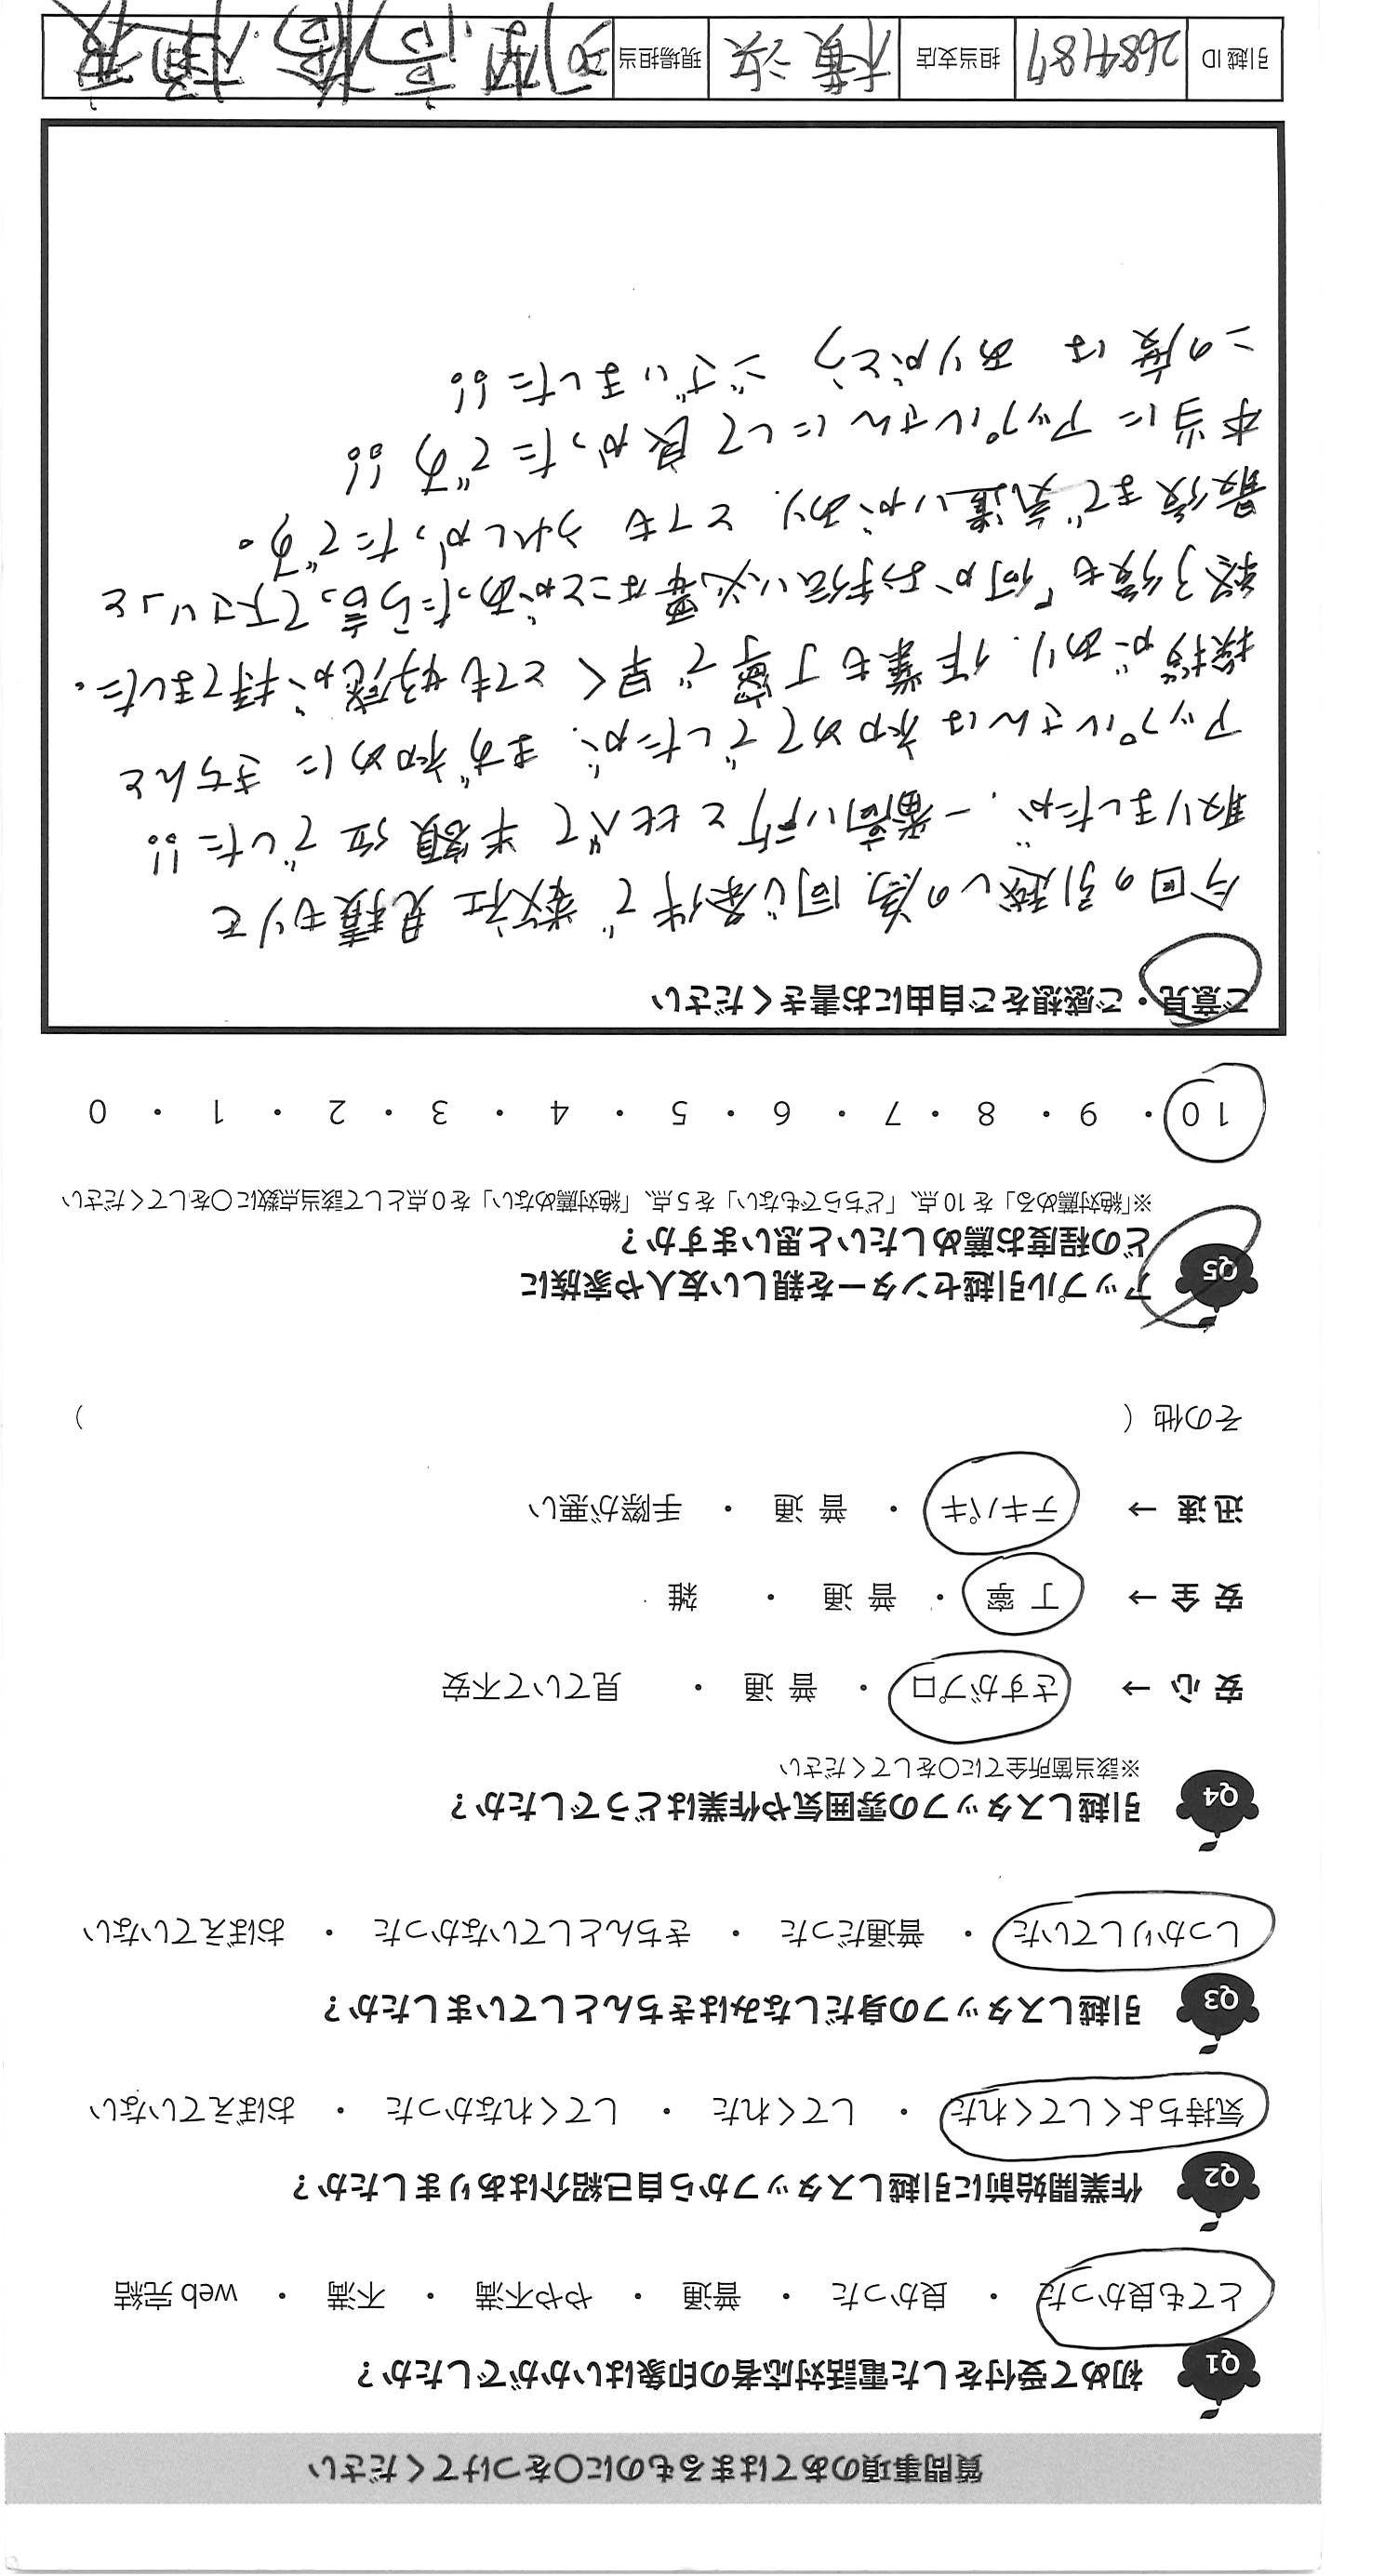 質問事項のあてはまるものに〇をつけてください
Q1 初めて受付をした電話対応者の印象はいかがでしたか？
とても良かった ・ 良かった ・ 普通 ・ やや不満 ・ 不満 ・ web 完結
Q2 作業開始前に引越しスタッフから自己紹介はありましたか？
気持ちよくしてくれた ・ してくれた ・ してくれなかった ・ おぼえていない
Q3 引越しスタッフの身だしなみはきちんとしていましたか？
しっかりしていた ・ 普通だった ・ きちんとしていなかった ・ おぼえていない
Q4 引越しスタッフの雰囲気や作業はどうでしたか？
※該当箇所全てに〇をしてください
安 心 → さすがプロ ・ 普 通 ・ 見ていて不安
安 全 → 丁 寧 ・ 普 通 ・ 雑
迅 速 → テキパキ ・ 普 通 ・ 手際が悪い
その他（ ）
Q5 アップル引越センターを親しい友人や家族に
どの程度お薦めしたいと思いますか？
※「絶対薦める」を 10 点、「どちらでもない」を 5 点、「絶対薦めない」を 0 点として該当点数に〇をしてください
10 ・ 9 ・ 8 ・ 7 ・ 6 ・ 5 ・ 4 ・ 3 ・ 2 ・ 1 ・ 0
ご意見・ご感想をご自由にお書きください
今回の引越しの為、同じ条件で数社見積もりを
取りましたが、一番高い所と比べて半額位でした!!
アップルさんは初めてでしたが、まず初めにきちんと
挨拶があり、作業も丁寧で早くとても好感が持てました。
終了後も「何かお手伝い必要なことがあったら言って下さい」と
最後まで気遣いがあり、とてもうれしかったです。
本当にアップルさんにして良かったです!!
この度はありがとうございました!!
引越 ID 2684187 担当支店 横浜 現場担当